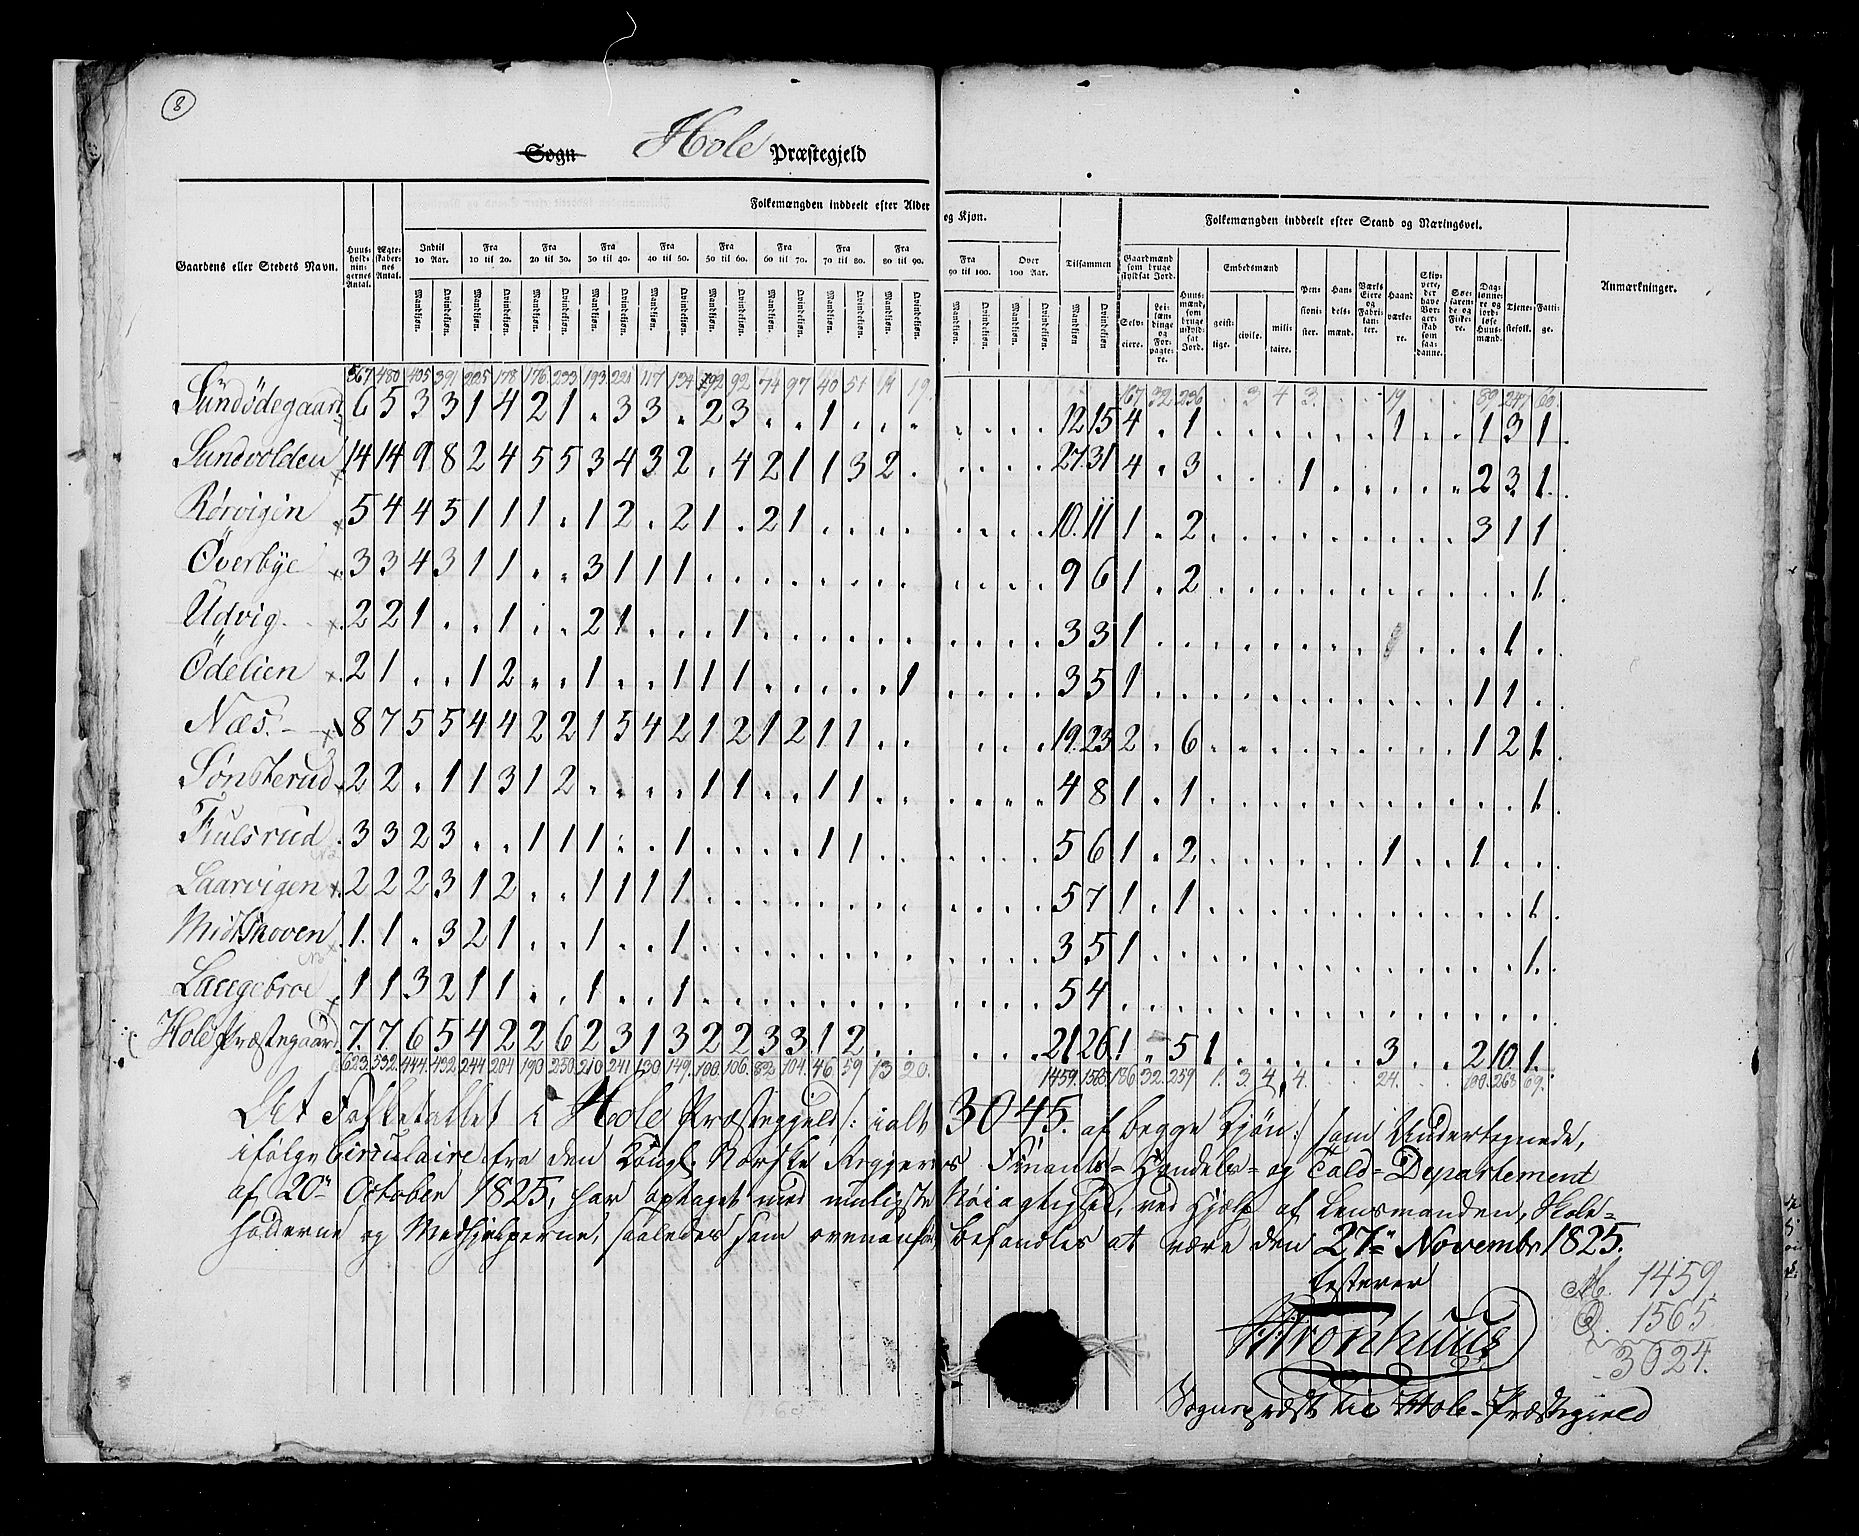 8
Sogn Hole Præstegjeld
Folkemængden inddeelt efter Alder og Kjøn.
Folkemængden inddeelt efter Stand og Næringsvei.
Gaardens eller Stedets Navn.
Huusholdningernes Antal.
Ægteskabernes Antal.
Indtil 10 Aar. Fra 10 til 20. Fra 20 til 30. Fra 30 til 40. Fra 40 til 50. Fra 50 til 60. Fra 60 til 70. Fra 70 til 80. Fra 80 til 90. Fra 90 til 100. Over 100 Aar. Tilsammen
Mandkiøn. Qvindekiøn.
Gaardmænd som bruge skyldsat Jord. Selveiere. Leilændinge og Forpagtere.
Huusmænd, som bruge uskyldsat Jord.
Embedsmænd geistlige. civile. militaire.
Pensionister. Handelsmænd. Værks Eiere og Fabrikanter. Haandværkere. Skippere, der have Borgerskab som saadanne. Søefarende og Fiskere. Daglønnere og jordløse Huusmænd. Tienestefolk. Fattige.
Anmærkninger.
567 480 405 391 225 178 176 233 193 221 117 134 92 92 74 97 40 51 11 19 167 32 236 . 3 4 3 . . 19 . . 89 247 60
Sundödegaard 6 5 3 3 1 4 2 1 . 3 3 . 2 3 . . 1 . . . . . . . 12 15 4 . 1 . . . . . . 1 . . 1 3 1
Sundvolden 14 14 9 8 2 4 5 5 3 4 3 2 . 4 2 1 1 3 2 . . . . . 27 31 4 . 3 . . . 1 . . . . . 2 3 1
Rörvigen 5 4 4 5 1 1 1 . 1 2 . 2 1 . 2 1 . . . . . . . . 10 11 1 . 2 . . . . . . . . . 3 1 1
Överbye 3 3 4 3 1 1 . . 3 1 1 1 . . . . . . . . . . . . 9 6 1 . 2 . . . . . . . . . . . 1
Udvig 2 2 1 . . 1 . . 2 1 . . . 1 . . . . . . . . . . 3 3 1 . . . . . . . . . . . . 1 .
Ödelien 2 1 . . 1 2 . . 1 . . 1 1 1 . . . . . 1 . . . . 3 5 1 . . . . . . . . . . . 1 1 .
Næs. 8 7 5 5 4 4 2 2 1 5 4 2 1 2 1 2 1 1 . . . . . . 19 23 2 . 6 . . . . . . . . . 1 2 1
Sönsterud 2 2 . 1 1 3 1 2 . . . . 1 1 . . 1 1 . . . . . . 4 8 1 . 1 . . . . . . . . . . . 1
Fiulsrud 3 3 2 3 . . 1 1 1 . . 1 . . . . 1 1 . . . . . . 5 6 1 . 2 . . . . . . 1 . . 1 . .
Laarvigen 2 2 2 3 1 2 . . 1 1 1 1 . . . . . . . . . . . . 5 7 1 . 1 . . . . . . . . . . . 1
Midtskoven 1 1 . 3 2 1 . . 1 . . 1 . . . . . . . . . . . . 3 5 1 . . . . . . . . . . . . . 1
Langebroe 1 1 3 2 1 1 . . 1 . . 1 . . . . . . . . . . . . 5 4 . . . . . . . . . . . . . . .
Hole Præstegaard 7 7 6 5 4 2 2 6 2 3 1 3 2 2 3 3 1 2 . . . . . . 21 26 1 . 5 1 . . . . . 3 . . 2 10 1
623 532 444 432 244 204 190 250 210 241 130 149 100 106 83 104 46 59 13 20 1459 1565 186 32 259 1 3 4 4 . . 24 . . 100 268 69
Det Folketallet i Hole Præstegjeld /: ialt 3045. af begge Kjön :/ som Undertegnede,
ifölge Circulaire fra den Kongl. Norske Regjerings Finants- Handels- og Told- Departement
af 20de October 1825, har optaget med muligste Nöiagtighed, ved Hjælp af Lensmanden, Skole-
holderne og Medhjelperne, saaledes som ovenanfört befandtes at være den 27de Novembr 1825.
Testerer
Kronhuus
Sognepræst til Hole-Præstegield
M. 1459.
Q. 1565
3024.